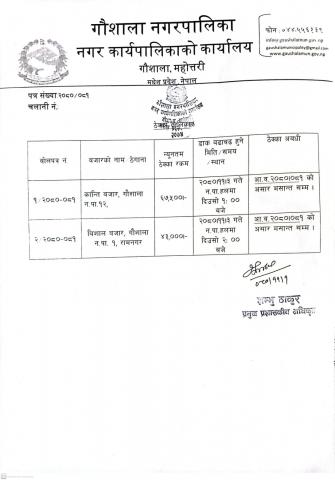 गौशाला नगरपालिका
नगर कार्यपालिकाको कार्यालय
गौशाला, महोत्तरी
मधेश प्रदेश, नेपाल
फोन : ०४४-५५६३६९
info@gaushalamun.gov.np
gaushalamunicipality@gmail.com
www.gaushalamun.gov.np
पत्र संख्या २०८०/०८१
चलानी नं.
बोलपत्र नं
बजारको नाम ठेगाना
न्युनतम ठेक्का रकम
डाक बढाबढ हुने मिति/समय/स्थान
ठेक्का अवधी
१/२०८०-०८१
कान्ति बजार, गौशाला न.पा.१२,
६७५००।-
२०८०।१।३ गते न.पा.हलमा दिउसो १: ०० बजे
आ.व.२०८०।०८१ को असार मसान्त सम्म ।
२/२०८०-०८१
विशाल बजार, गौशाला न.पा. १, रामनगर
४३,०००।-
२०८०।१।३ गते न.पा.हलमा दिउसो २: ०० बजे
आ.व.२०८०।०८१ को असार मसान्त सम्म ।
शम्भु ठाकुर
प्रमुख प्रशासकीय अधिकृत